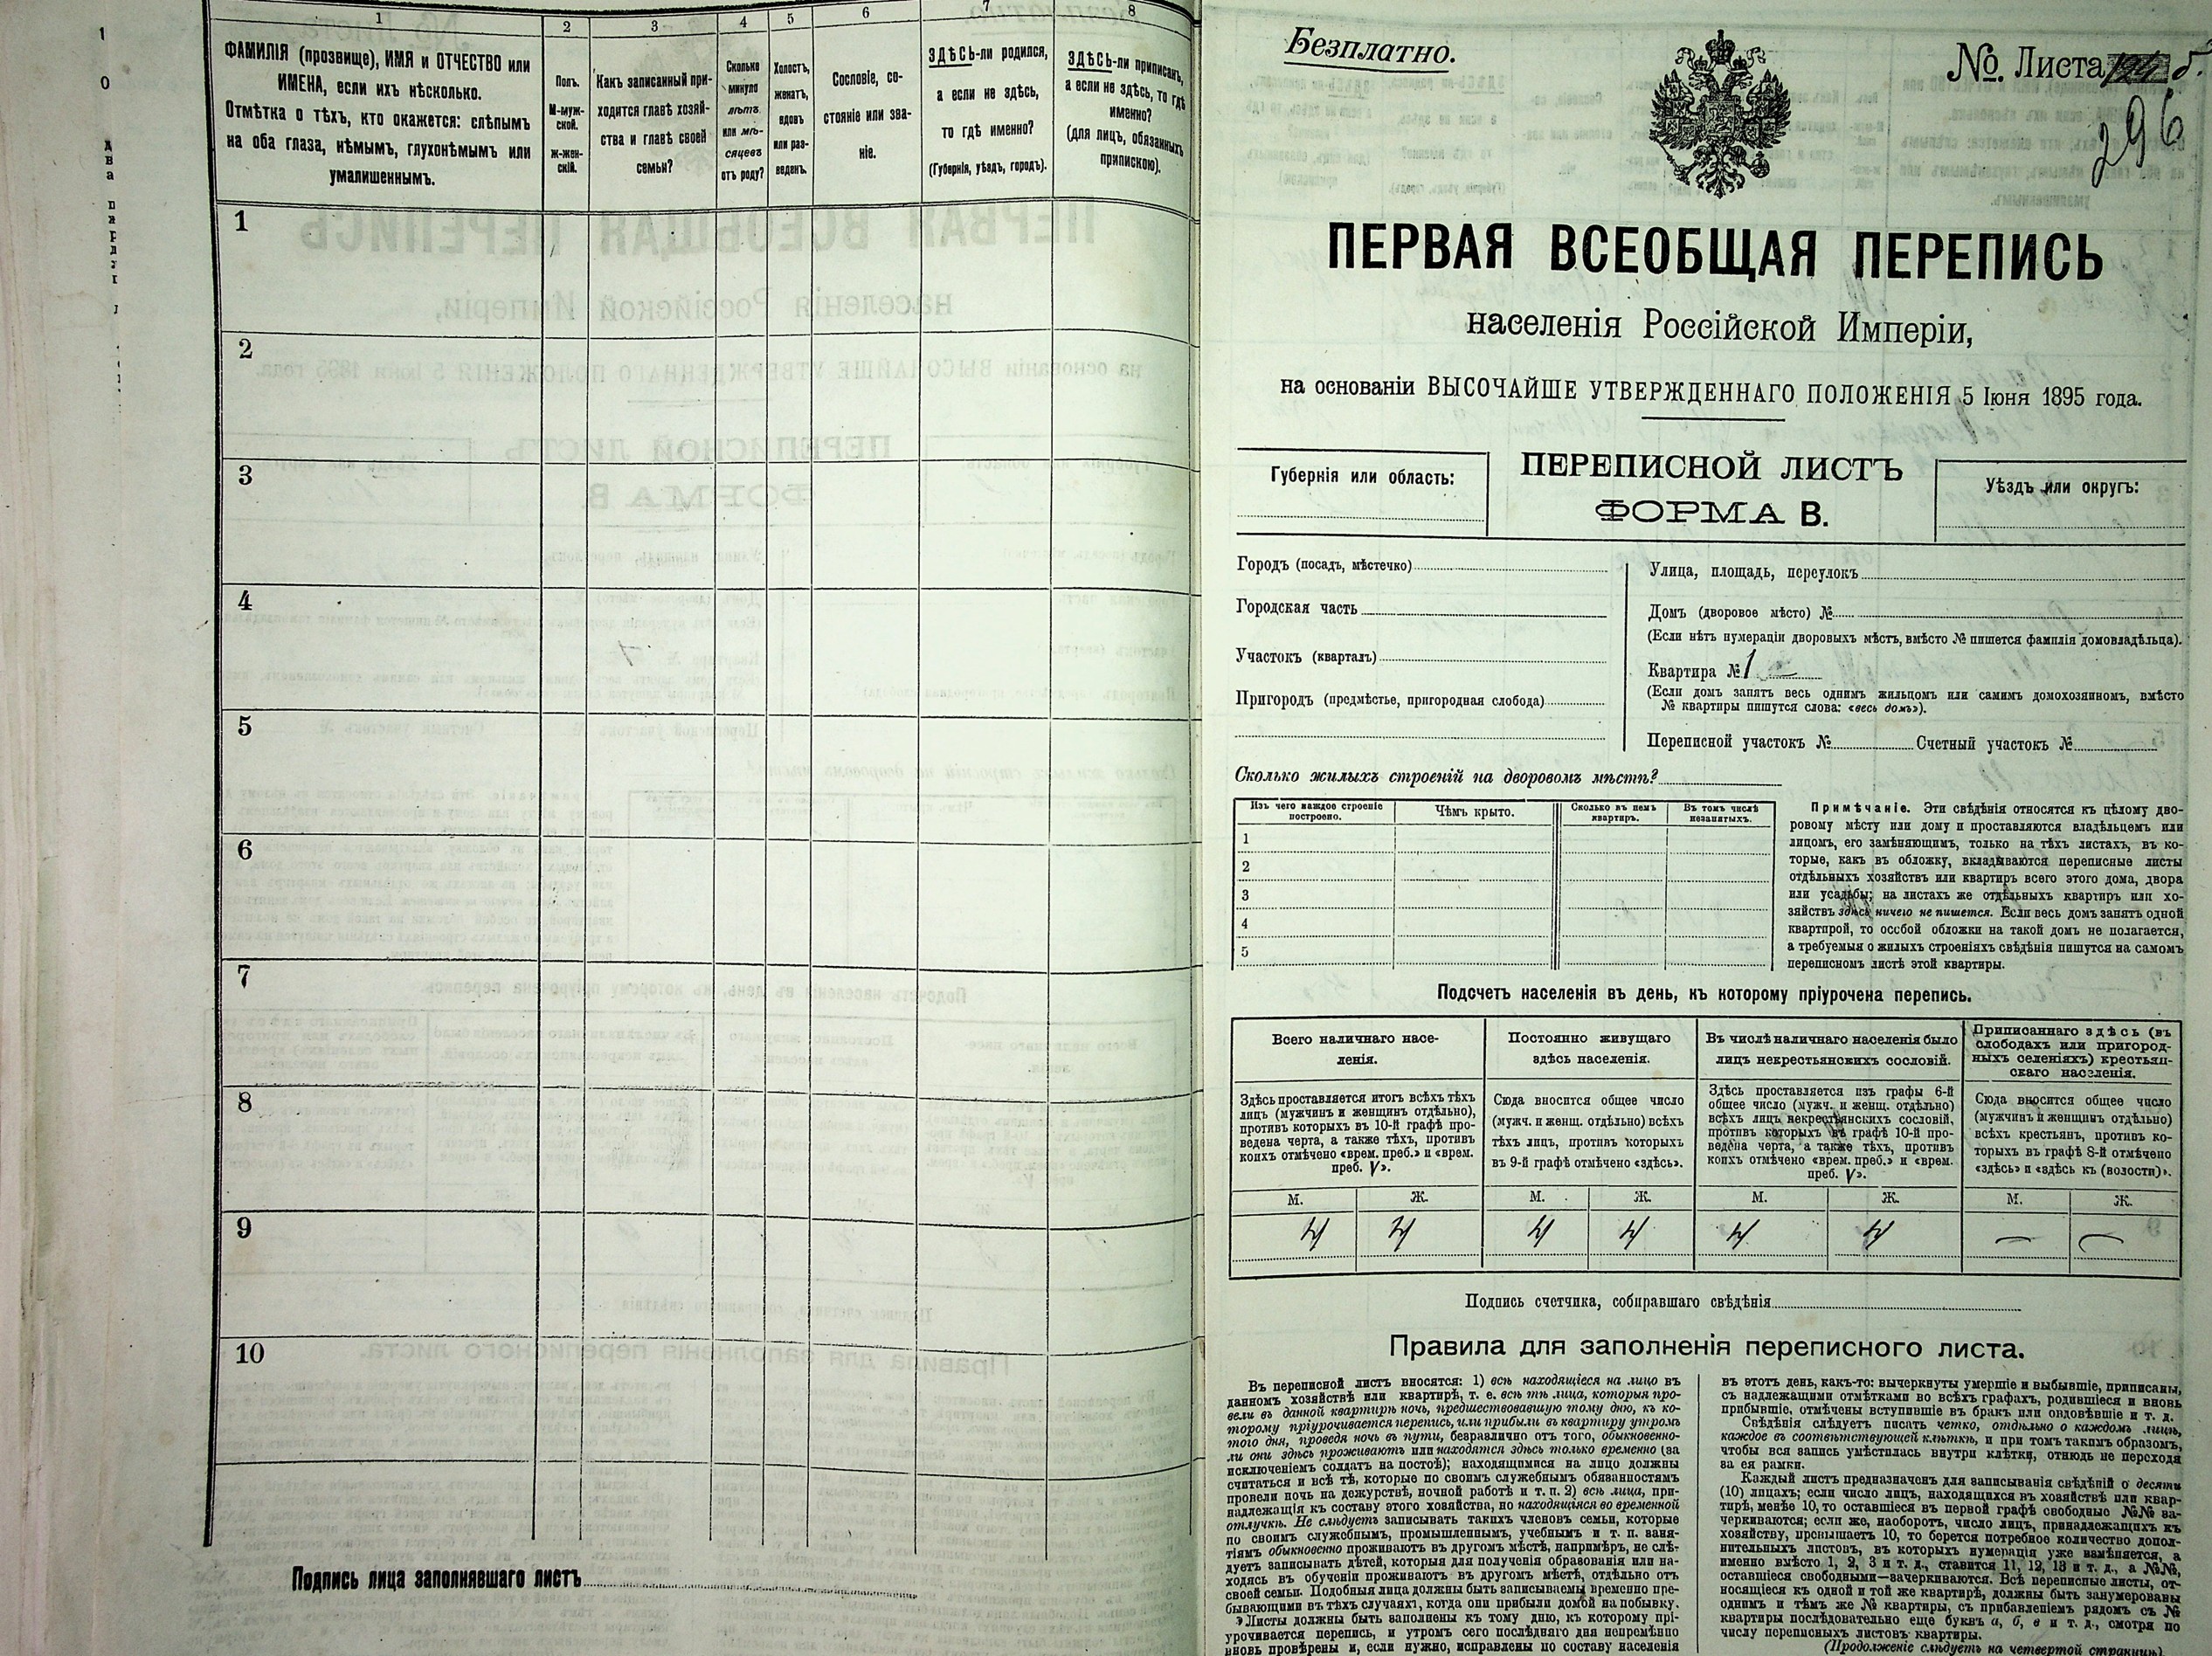 1 2 3 4 5 6 7 8
ФАМИЛІЯ (прозвище), ИМЯ и ОТЧЕСТВО или
ИМЕНА, если ихъ нѣсколько.
Отмѣтка о тѣхъ, кто окажется: слѣпымъ
на оба глаза, нѣмымъ, глухонѣмымъ или
умалишеннымъ.
Полъ.
М-муж-
ской.
Ж-жен-
скій.
Какъ записанный при-
ходится главѣ хозяй-
ства и главѣ своей
семьи?
Сколько
минуло
лѣтъ
или мѣ-
сяцевъ
отъ роду?
Холостъ,
женатъ,
вдовъ
или раз-
веденъ.
Сословіе, со-
стояніе или зва-
ніе.
ЗДѢСЬ-ли родился,
а если не здѣсь,
то гдѣ именно?
(Губернія, уѣздъ, городъ).
ЗДѢСЬ-ли приписанъ,
а если не здѣсь, то гдѣ
именно?
(для лицъ, обязанныхъ
припискою).
1
2
3
4
5
6
7
8
9
10
Подпись лица заполнявшаго листъ
Безплатно.
№. Листа
296
ПЕРВАЯ ВСЕОБЩАЯ ПЕРЕПИСЬ
населенія Россійской Имперіи,
на основаніи ВЫСОЧАЙШЕ УТВЕРЖДЕННАГО ПОЛОЖЕНІЯ 5 Іюня 1895 года.
Губернія или область:
ПЕРЕПИСНОЙ ЛИСТЪ
ФОРМА В.
Уѣздъ или округъ:
Городъ (посадъ, мѣстечко)
Городская часть
Участокъ (кварталъ)
Пригородъ (предмѣстье, пригородная слобода)
Улица, площадь, переулокъ
Домъ (дворовое мѣсто) №
(Если нѣтъ нумераціи дворовыхъ мѣстъ, вмѣсто № пишется фамилія домовладѣльца).
Квартира № 1
(Если домъ занятъ весь однимъ жильцомъ или самимъ домохозяиномъ, вмѣсто
№ квартиры пишутся слова: «весь домъ»).
Переписной участокъ № Счетный участокъ №
Сколько жилыхъ строеній на дворовомъ мѣстѣ?
Изъ чего каждое строеніе
построено.
Чѣмъ крыто.
Сколько въ немъ
квартиръ.
Въ томъ числѣ
незанятыхъ.
1
2
3
4
5
Примѣчаніе. Эти свѣдѣнія относятся къ цѣлому дво-
ровому мѣсту или дому и проставляются владѣльцемъ или
лицомъ, его замѣняющимъ, только на тѣхъ листахъ, въ ко-
торые, какъ въ обложку, вкладываются переписные листы
отдѣльныхъ хозяйствъ или квартиръ всего этого дома, двора
или усадьбы; на листахъ же отдѣльныхъ квартиръ или хо-
зяйствъ здѣсь ничего не пишется. Если весь домъ занятъ одной
квартирой, то особой обложки на такой домъ не полагается,
а требуемыя о жилыхъ строеніяхъ свѣдѣнія пишутся на самомъ
переписномъ листѣ этой квартиры.
Подсчетъ населенія въ день, къ которому пріурочена перепись.
Всего наличнаго насе-
ленія.
Постоянно живущаго
здѣсь населенія.
Въ числѣ наличнаго населенія было
лицъ некрестьянскихъ сословій.
Приписаннаго здѣсь (въ
слободахъ или пригород-
ныхъ селеніяхъ) крестьян-
скаго населенія.
Здѣсь проставляется итогъ всѣхъ тѣхъ
лицъ (мужчинъ и женщинъ отдѣльно),
противъ которыхъ въ 10-й графѣ про-
ведена черта, а также тѣхъ, противъ
коихъ отмѣчено «врем. преб.» и «врем.
преб. V».
Сюда вносится общее число
(мужч. и женщ. отдѣльно) всѣхъ
тѣхъ лицъ, противъ которыхъ
въ 9-й графѣ отмѣчено «здѣсь».
Здѣсь проставляется изъ графы 6-й
общее число (мужч. и женщ. отдѣльно)
всѣхъ лицъ некрестьянскихъ сословій,
противъ которыхъ въ графѣ 10-й про-
ведена черта, а также тѣхъ, противъ
коихъ отмѣчено «врем. преб.» и «врем.
преб. V».
Сюда вносится общее число
(мужчинъ и женщинъ отдѣльно)
всѣхъ крестьянъ, противъ ко-
торыхъ въ графѣ 8-й отмѣчено
«здѣсь» и «здѣсь къ (волости)».
М. Ж. М. Ж. М. Ж. М. Ж.
4 4 4 4 4 4 — —
Подпись счетчика, собиравшаго свѣдѣнія
Правила для заполненія переписного листа.
Въ переписной листъ вносятся: 1) всѣ находящіеся на лицо въ
данномъ хозяйствѣ или квартирѣ, т. е. всѣ тѣ лица, которыя про-
вели въ данной квартирѣ ночь, предшествовавшую тому дню, къ ко-
торому пріурочивается перепись, или прибыли въ квартиру утромъ
того дня, проведя ночь въ пути, безразлично отъ того, обыкновенно-
ли они здѣсь проживаютъ или находятся здѣсь только временно (за
исключеніемъ солдатъ на постоѣ); находящимися на лицо должны
считаться и всѣ тѣ, которые по своимъ служебнымъ обязанностямъ
провели ночь на дежурствѣ, ночной работѣ и т. п. 2) всѣ лица, при-
надлежащія къ составу этого хозяйства, но находящіяся во временной
отлучкѣ. Не слѣдуетъ записывать такихъ членовъ семьи, которые
по своимъ служебнымъ, промышленнымъ, учебнымъ и т. п. заня-
тіямъ обыкновенно проживаютъ въ другомъ мѣстѣ, напримѣръ, не слѣ-
дуетъ записывать дѣтей, которыя для полученія образованія или на-
ходясь въ обученіи проживаютъ въ другомъ мѣстѣ, отдѣльно отъ
своей семьи. Подобныя лица должны быть записываемы временно пре-
бывающими въ тѣхъ случаяхъ, когда они прибыли домой на побывку.
Листы должны быть заполнены къ тому дню, къ которому прі-
урочивается перепись, и утромъ сего послѣдняго дня непремѣнно
вновь провѣрены и, если нужно, исправлены по составу населенія
въ этотъ день, какъ-то: вычеркнуты умершіе и выбывшіе, приписаны,
съ надлежащими отмѣтками во всѣхъ графахъ, родившіеся и вновь
прибывшіе, отмѣчены вступившіе въ бракъ или овдовѣвшіе и т. д.
Свѣдѣнія слѣдуетъ писать четко, отдѣльно о каждомъ лицѣ,
каждое въ соотвѣтствующей клѣткѣ, и при томъ такимъ образомъ,
чтобы вся запись умѣстилась внутри клѣтки, отнюдь не переходя
за ея рамки.
Каждый листъ предназначенъ для записыванія свѣдѣній о десяти
(10) лицахъ; если число лицъ, находящихся въ хозяйствѣ или квар-
тирѣ, менѣе 10, то оставшіеся въ первой графѣ свободные №№ за-
черкиваются; если же, наоборотъ, число лицъ, принадлежащихъ къ
хозяйству, превышаетъ 10, то берется потребное количество допол-
нительныхъ листовъ, въ которыхъ нумерація уже измѣняется, а
именно вмѣсто 1, 2, 3 и т. д., ставится 11, 12, 13 и т. д., а №№,
оставшіеся свободными—зачеркиваются. Всѣ переписные листы, от-
носящіеся къ одной и той же квартирѣ, должны быть занумерованы
однимъ и тѣмъ же № квартиры, съ прибавленіемъ рядомъ съ №
квартиры послѣдовательно еще буквъ а, б, в и т. д., смотря по
числу переписныхъ листовъ квартиры.
(Продолженіе слѣдуетъ на четвертой страницѣ).